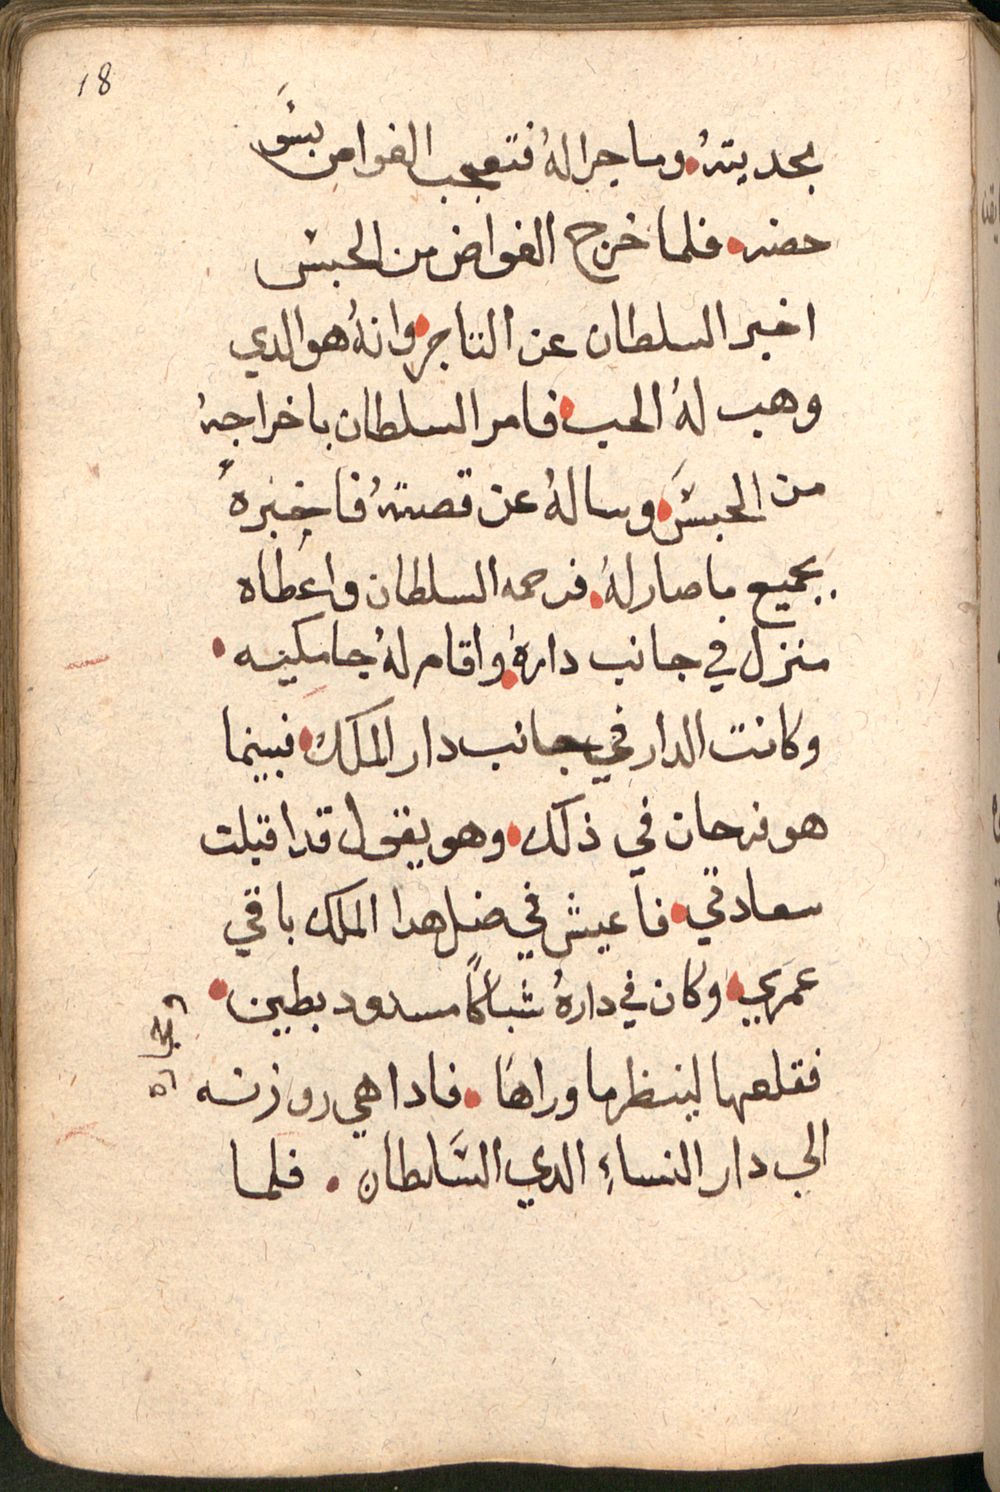 18
بحديته وما جرا لهُ فتعجب الغواص بسو
حضه فلما خرج الغواض من الحبس
اخبر السلطان عن التاجر وانهُ هو الدي
وهب لهُ الحب فامر السلطان باخراجهُ
من الحبس وسالهُ عن قصتهُ فاخبرهُ
بجميع ما صار لهُ فرحمه السلطان واعطاه
منزل في جانب دارهُ واقام لهُ جامكيه
وكانت الدار في جانب دار الملك فبينما
هو فرحان في ذلك وهو يقول قد اقبلت
سعادتي فاعيش في ضل هدا الملك باقي
عمري وكان في دارهُ شباكاً مسدود بطين
وحجاره
فقلعها لينظر ما وراها فادا هي روزنه
الي دار النساء الدي السَّلطان فلما